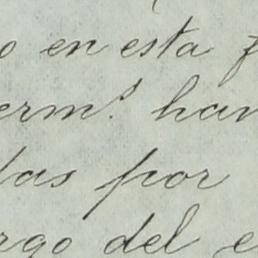 o en esta f
erm.^s han
das por
rgo del e